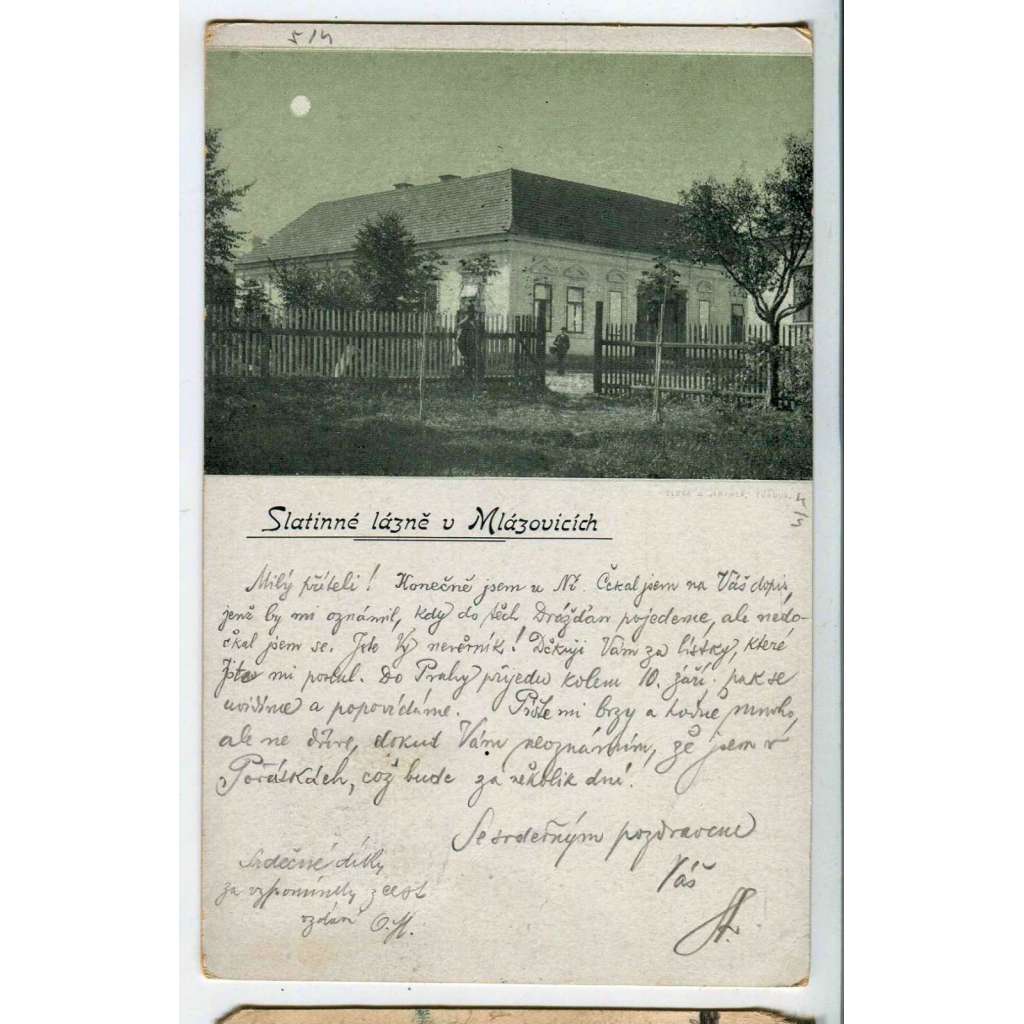 5/4
Slatinné lázně v Mlázovicích
Milý příteli! Konečně jsem u Čekal jsem na Váš dopis,
jenž by mi oznámil, kdy do těch Drážďan pojedeme, ale nedo-
čkal jsem se. Jste Vy nevěrník! Děkuji Vám za lístky, které
Jste mi poslal. Do Prahy přijedu kolem 10. září. pak se
uvidíme a popovídáme. Pište mi brzy a hodně mnoho,
ale ne dříve, dokud Vám neoznámím, že jsem v
což bude za několik dní!
Se srdečným pozdravem
Váš
Srdečné díky
za vzpomínky z cest
vzdává O. H.